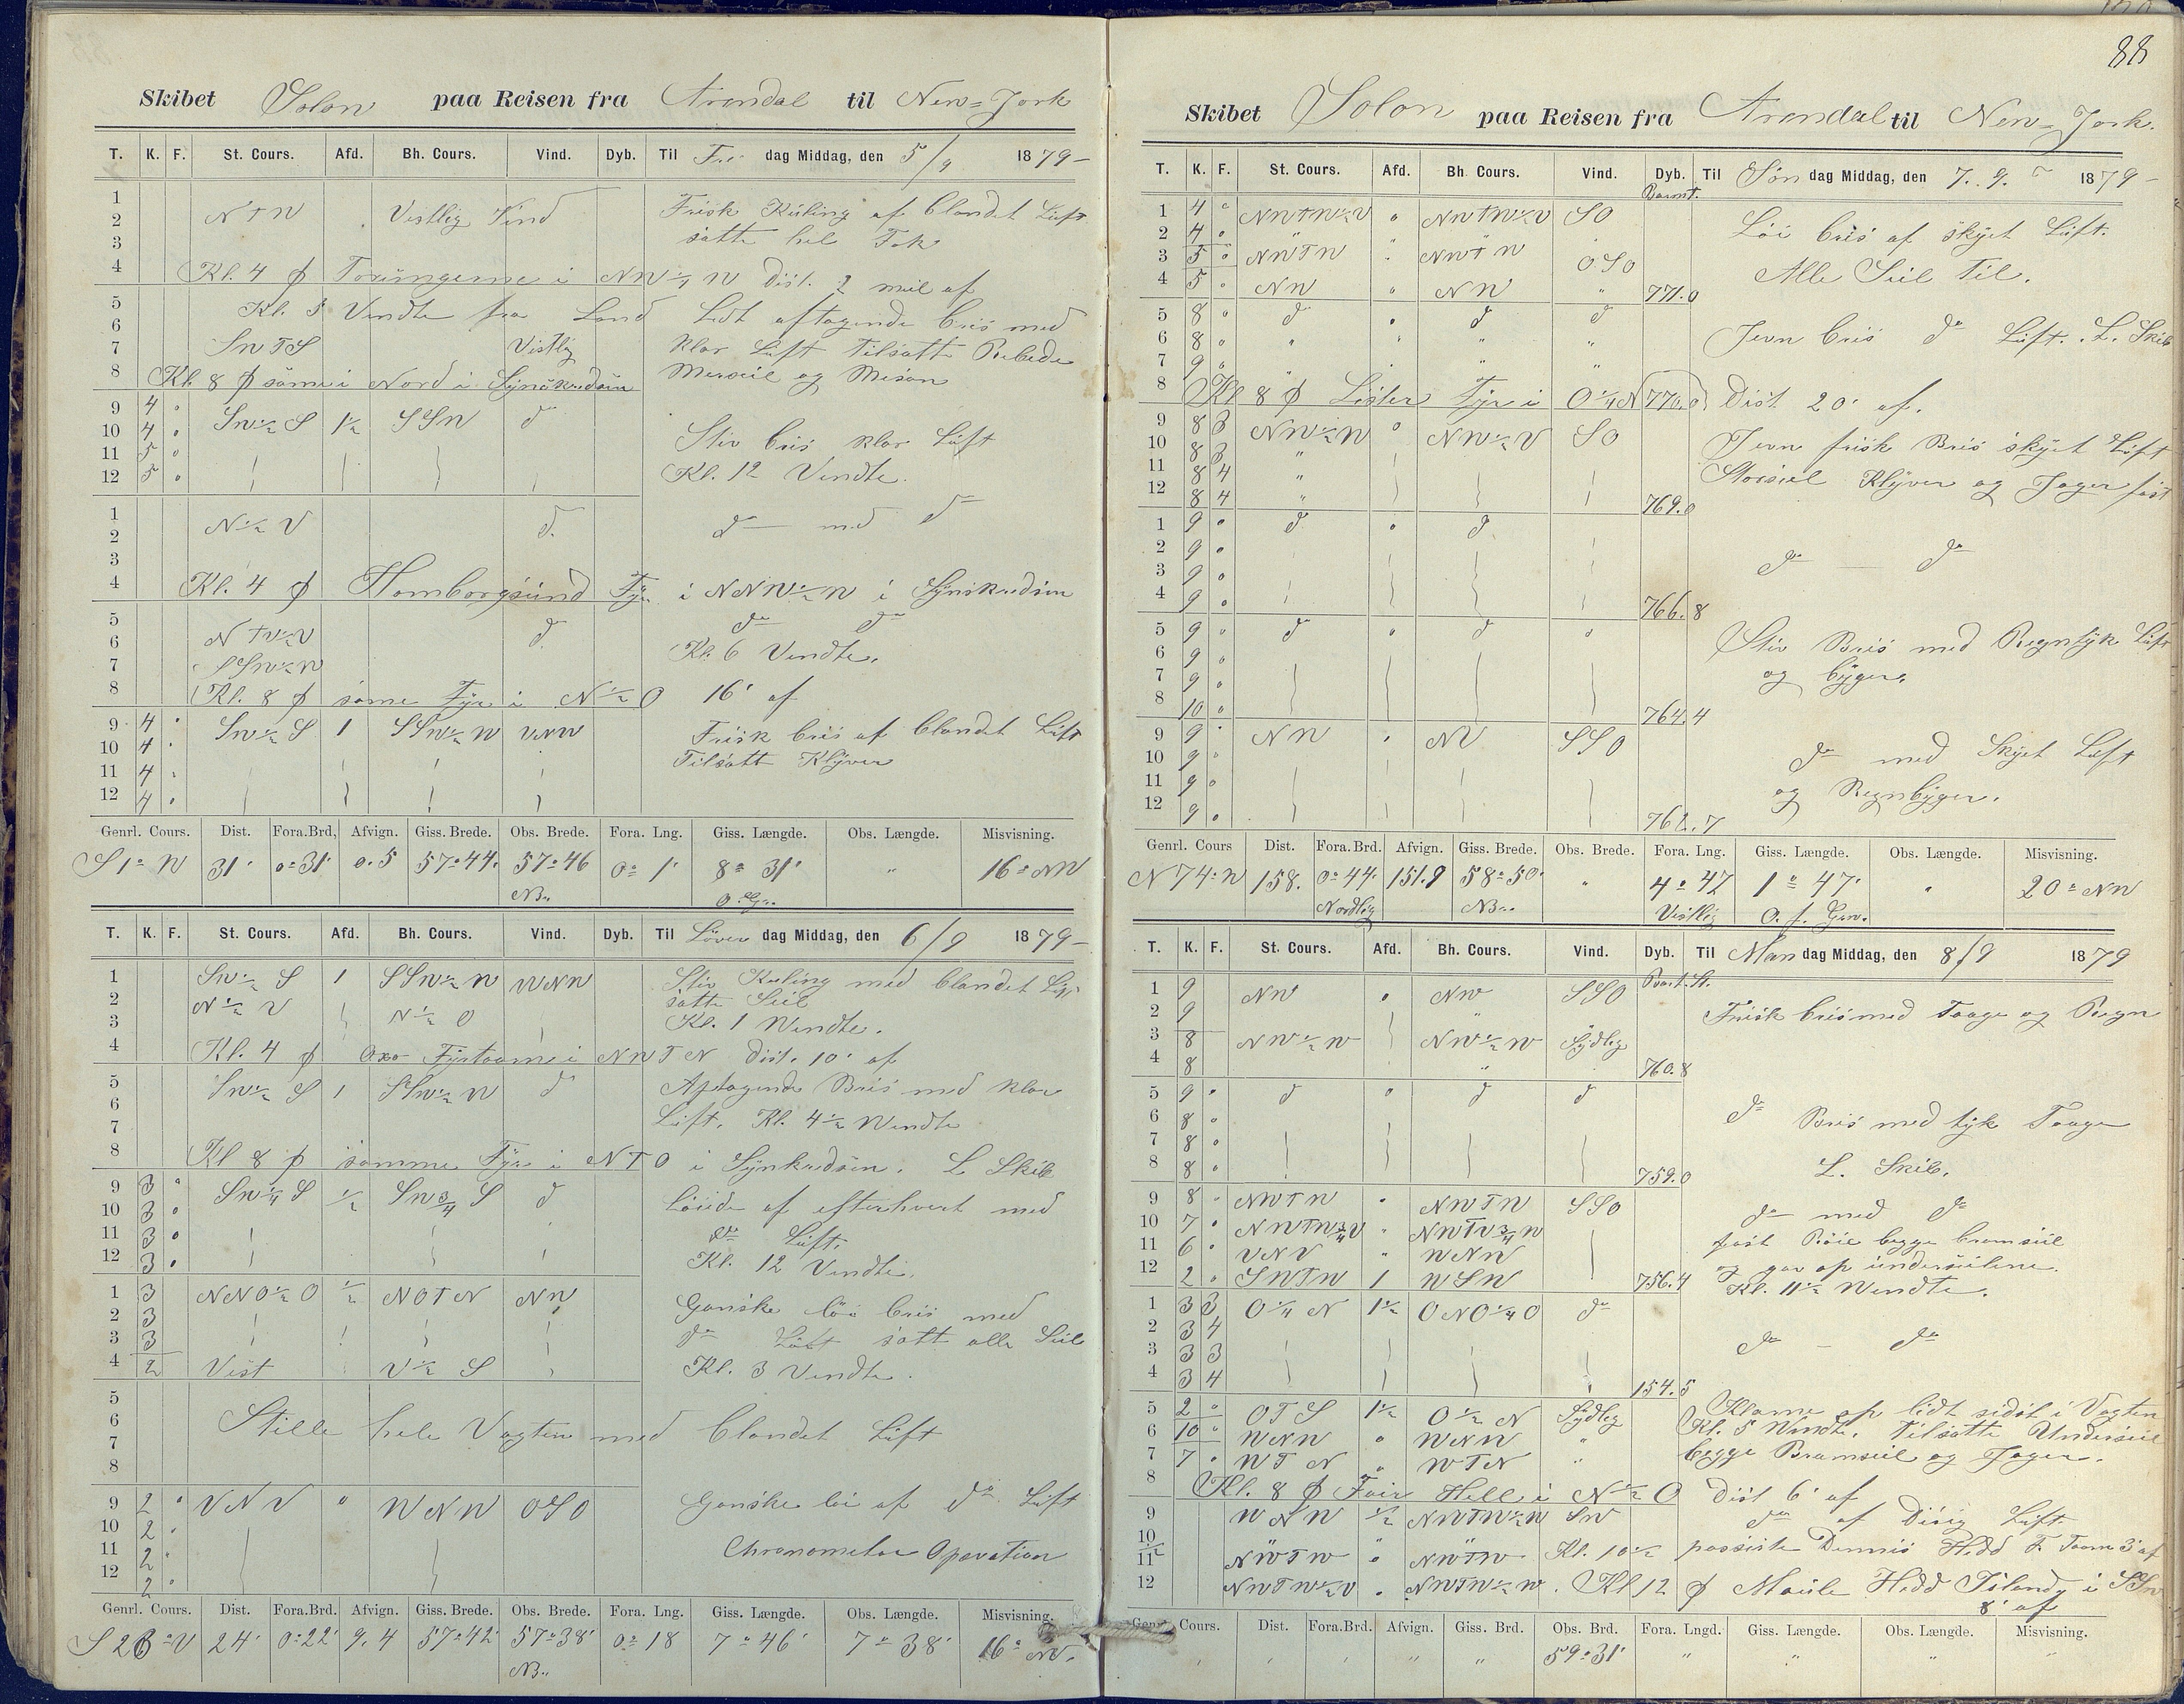 Skibet Solon paa Reisen fra Arendal til New=York
T. K. F. St. Cours. Afd. Bh. Cours. Vind. Dyb. Til Fre dag Middag, den 5/9 1879-
1
2 NTW Vestlig Vind Frisk Kuling af blandet Luft
3 satte hel Fok
4 Kl. 4 φ Torungerne i NW 1/4 W Dist. 2 mil af
5 Kl. 5 Vendte fra Land Lidt aftagende bris med
6
7 SWTS Vestlig klar Luft tilsatte Rebede
8 Kl. 8 φ samme i Nord i Synskredsen Merseil og Mesan
9 4 ° SW 1/2 S 1 1/2 SSW d°
10 4 ° Stiv bris klar Luft
11 5 °
12 5 ° Kl. 12 Vendte.
1 N 1/2 V d° d° med d°
2
3
4 Kl. 4 φ Homborgsund Fyr i NNW 1/2 W i Synskredsen
5 d° d°
6 NTV 1/2 V d° Kl. 6 Vendte.
7 SSW 1/2 W
8 Kl. 8 φ samme Fyr i N 1/2 O 16' af
9 4 ° SW 1/2 S 1 SSW 1/2 W VNW Frisk bris af blandet Luft
10 4 ° Tilsatt Klyver
11 4 °
12 4 °
Genrl. Cours. Dist. Fora.Brd, Afvign. Giss. Brede. Obs. Brede. Fora. Lng. Giss. Længde. Obs. Længde. Misvisning.
S 1° W 31' 0° 31' 0.5 57° 44' 57° 46 0° 1' 8° 31' " 16° NW
NB..
T. K. F. St. Cours. Afd. Bh. Cours. Vind. Dyb. Til Löver dag Middag, den 6/9 1879-
1 SW 1/2 S 1 SSW 1/2 W WNW Stiv Kuling med blandet Luft
2 N 1/2 V N 1/2 O satte Seil
3 Kl. 1 Wendte.
4 Kl. 4 φ Oxö Fyrtaarne i NWTN Dist. 10' af
5 SW 1/2 S 1 SSW 1/2 W d° Aftagende Bris med klar
6
7 Luft. Kl. 4 1/2 Wendte
8 Kl 8 φ samme Fyr i NTO i Synkredsen. L Skib
9 3 ° SW 1/4 S 1/2 SW 3/4 S d° Löiede af efterhvert med
10 3 °
11 3 ° d° Luft.
12 3 ° Kl. 12 Vendte.
1 3 NNO 1/2 O 1/2 NOTN NW Ganske löi bris med
2 3
3 3 d° Luft satt alle Seil
4 2 Vest V 1/2 S Kl. 3 Vendte.
5
6 Stille hele Vagten med blandet Luft
7
8
9 2 ° VNV " WNW OSO Ganske löi af d° Luft
10 2 °
11 2 ° Chronometer Opervation
12 2 °
Genrl. Cours. Dist. Fora.Brd. Afvign. Giss. Brede. Obs. Brede. Fora. Lng. Giss. Længde. Obs. Længde. Misvisning.
S 26° V 24' 0° 22' 9.4 57° 42' 57° 38' 0° 18 7° 46' 7° 38' 16° NV.
NB..
88
Skibet Solon paa Reisen fra Arendal til New=York.
T. K. F. St. Cours. Afd. Bh. Cours. Vind. Dyb. Til Søn dag Middag, den 7. 9. 1879-
1 4 ° NWTW 1/2 V ° NWTW 1/2 V SO
2 4 ° " " Löi bris af skyet Luft.
3 5 ° NWTN " NWTN OSO
4 5 ° NW " NW " 771.0 Alle Seil til.
5 8 ° d° ° d° d°
6 8 ° " " " " Jevn bris d° Luft. L. Skib
7 9 ° "
8 Kl 8 φ Lister Fyr i O 1/4 N 770.0 Dist 20' af.
9 8 3 NW 1/2 W ° NW 1/2 V SO
10 8 3 " Jevn frisk Bris skyet Luft
11 8 4 " Storseil Klyver og Jager fast
12 8 4 " 769.0
1 9 ° d° ° d°
2 9 °
3 9 ° d° — d°
4 9 ° 766.8
5 9 ° d° ° d° ° Stiv Bris med Regntyk Luft
6 9 °
7 9 ° og byger.
8 10 ° 764.4
9 9 ° NW ° NV SSO
10 9 ° d° med Skyet Luft
11 9 ° og Regnbyger.
12 9 ° 762.7
Genrl. Cours Dist. Fora.Brd. Afvign. Giss. Brede. Obs. Brede. Fora. Lng. Giss. Længde. Obs. Længde. Misvisning.
N 74° W 158. 0° 44' 151.9 58° 50' " 4° 47 1° 47' " 20° NW
Nordlig NB.. Vestlig O. f. Grw.
T. K. F. St. Cours. Afd. Bh. Cours. Vind. Dyb. Til Man dag Middag, den 8/9 1879
1 9 NW ° NW SSO
2 9 " Frisk bris med Taage og Regn
3 8 NW 1/2 W NW 1/2 W Sydlig
4 8 " 760.8
5 9 ° d° ° d° d°
6 8 ° d° Bris med tyk Taage
7 8 °
8 8 ° 759.0 L. Skib.
9 8 ° NWTW ° NWTW SSO d° med d°
10 7 ° NWTW 3/4 V " NWTV 3/4 W fast Röie begge bramseil
11 6 ° VNV " WNW og gav op underseilene.
12 2 ° SWTW 1 WSW 756.4 Kl. 11 1/2 Wendte.
1 3 3 O 1/4 N 1 1/2 ONO 1/4 O d°
2 3 4 d° - d°
3 3 3
4 3 4 154.5
5 2 ° OTS 1 1/2 O 1/2 N Sydlig Klarne op lidt sidst i Vagten
6 10 ° WNW ° WNW " Kl. 5 Wendte. Tilsatte Underseil
7 7 ° WTN " WTN " begge Bramseil og Jager.
8 Kl. 8 φ Fair Hill i N 1/2 O Dist 6' af
9 WNW 1/2 NWTW 1/2 W SW d° af Disig Luft.
10
11 NWTW ° NWTW Kl. 10 1/2 passerte Dennis Hedd F. Taarn 3' af
12 NWTW 1/2 V ° NWTW 1/2 W. Kl 12 φ Maule Hedd Islendy i SSW
8' af
Cours. Dist. Fora.Brd. Afvign. Giss. Brd. Obs. Brd. Fora. Lngd. Giss. Længde. Obs. Længde. Misvisning.
" " " " " 59° 31' " " " "